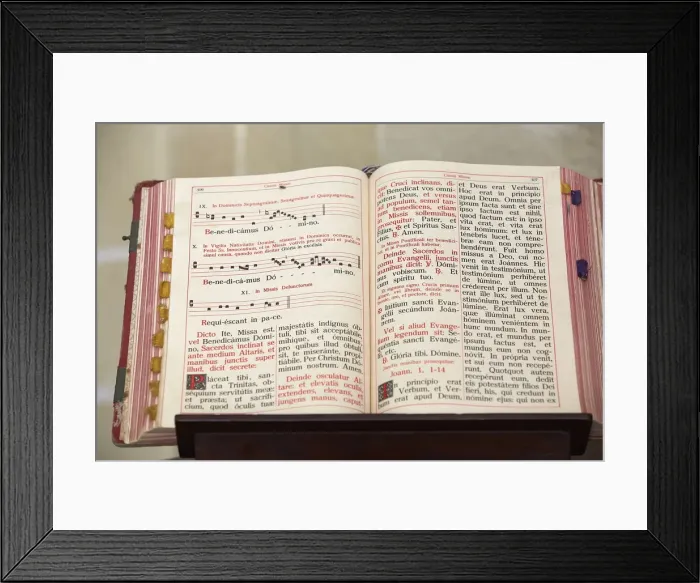 Benedicámus Dó - - - mi-no.
Be-ne-di-cá-mus Dó - - - - mi-no.
XI. In Missis Defunctorum
Requi-éscant in pa-ce.
Dicto Ite, Missa est,
vel Benedicámus Dómi-
no, Sacerdos inclinat se
ante medium Altaris, et
manibus junctis super
illud, dicit secrete:
Pláceat tibi, san-
cta Trínitas, ob-
séquium servitútis meæ:
et præsta; ut sacrifí-
cium, quod óculis tuæ
majestátis indígnus ób-
tuli, tibi sit acceptábile,
mihíque, et ómnibus
pro quibus illud óbtuli,
sit, te miseránte, propi-
tiábile. Per Christum Dó-
minum nostrum. Amen.
Deinde osculatur Al-
tare: et elevatis oculis,
extendens, elevans, et
jungens manus, caput-
que Cruci inclinans, di-
cit: Benedícat vos omní-
potens Deus, et versus
ad populum, semel tan-
tum benedicens, etiam
in Missis sollemnibus,
prosequitur: Pater, et
Fílius, ✠ et Spíritus San-
ctus. ℟. Amen.
Deinde Sacerdos in
cornu Evangelii, junctis
manibus dicit: ℣. Dómi-
nus vobíscum. ℟. Et
cum spíritu tuo.
Inítium sancti Evan-
gélii secúndum Joán-
nem.
Vel si aliud Evange-
lium legendum sit: Se-
quéntia sancti Evangé-
lii, etc.
℟. Glória tibi, Dómine.
Joann. 1, 1-14
In princípio erat
Verbum, et Ver-
bum erat apud Deum,
et Deus erat Verbum.
Hoc erat in princípio
apud Deum. Omnia per
ipsum facta sunt: et sine
ipso factum est nihil,
quod factum est: in ipso
vita erat, et vita erat
lux hóminum: et lux in
ténebris lucet, et téne-
bræ eam non compre-
hendérunt. Fuit homo
missus a Deo, cui no-
men erat Joánnes. Hic
venit in testimónium, ut
testimónium perhibéret
de lúmine, ut omnes
créderent per illum. Non
erat ille lux, sed ut te-
stimónium perhibéret de
lúmine. Erat lux vera,
quæ illúminat omnem
hóminem veniéntem in
hunc mundum. In mun-
do erat, et mundus per
ipsum factus est, et
mundus eum non cog-
nóvit. In própria venit,
et sui eum non recepé-
runt. Quotquot autem
recepérunt eum, dedit
eis potestátem fílios Dei
fíeri, his, qui credunt in
nómine ejus: qui non ex